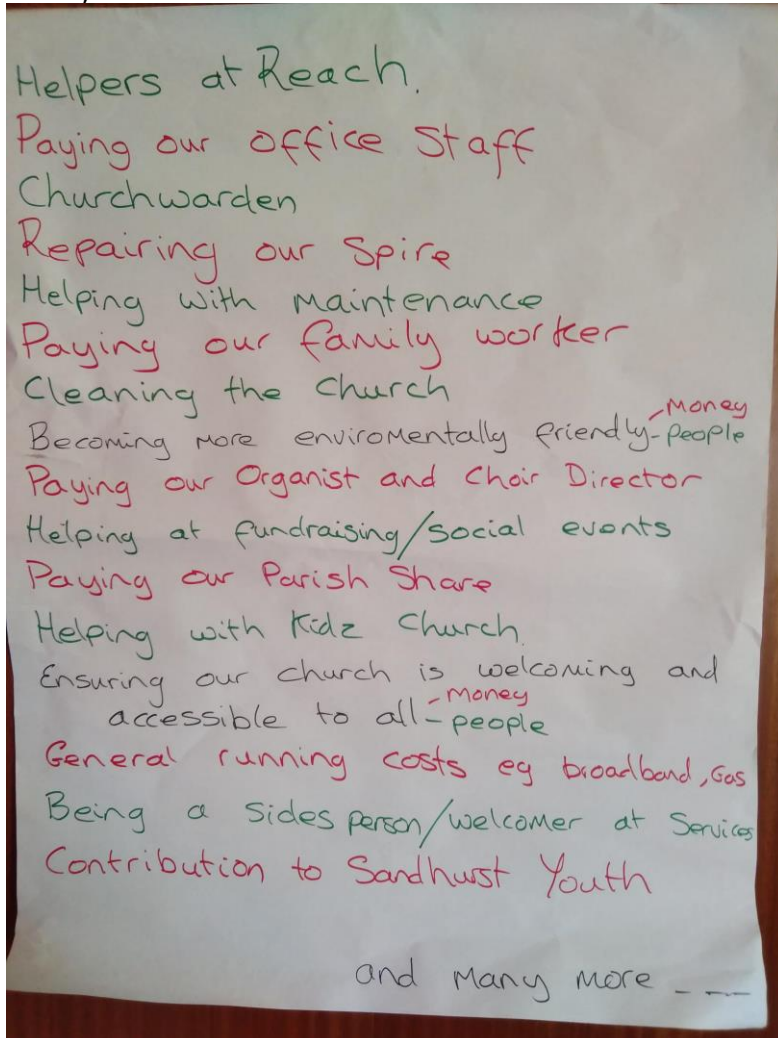 Helpers at Reach.
Paying our office Staff
Churchwarden
Repairing our Spire
Helping with maintenance
Paying our family worker
Cleaning the Church
- Money
Becoming more enviromentally friendly - people
Paying our Organist and Choir Director
Helping at fundraising/social events
Paying our Parish Share
Helping with Kidz Church.
Ensuring our church is welcoming and
- Money
accessible to all - people
General running costs eg broadband, Gas
Being a sides person/welcomer at Services
Contribution to Sandhurst Youth
and many more ---